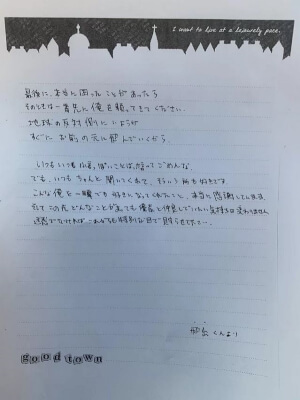 I want to live at a leisurely pace.
最後に、本当に困ったことがあったら
そのときは一番先に俺を頼ってきてください。
地球の反対側にいようが
すぐにお前の元に飛んでいくから。
いつもいつも っぽいことばっか言ってごめんな。
でも、いつもちゃんと聞いてくれて、そういう所も好きです。
こんな俺を一瞬でも好きになってくれたこと、本当に感謝してします。
この先どんなことがあっても 優 と仲良くしていたい気持ちは変わりません。
迷惑でなければこれからも特別な目で見させてくだ
くんより
good town